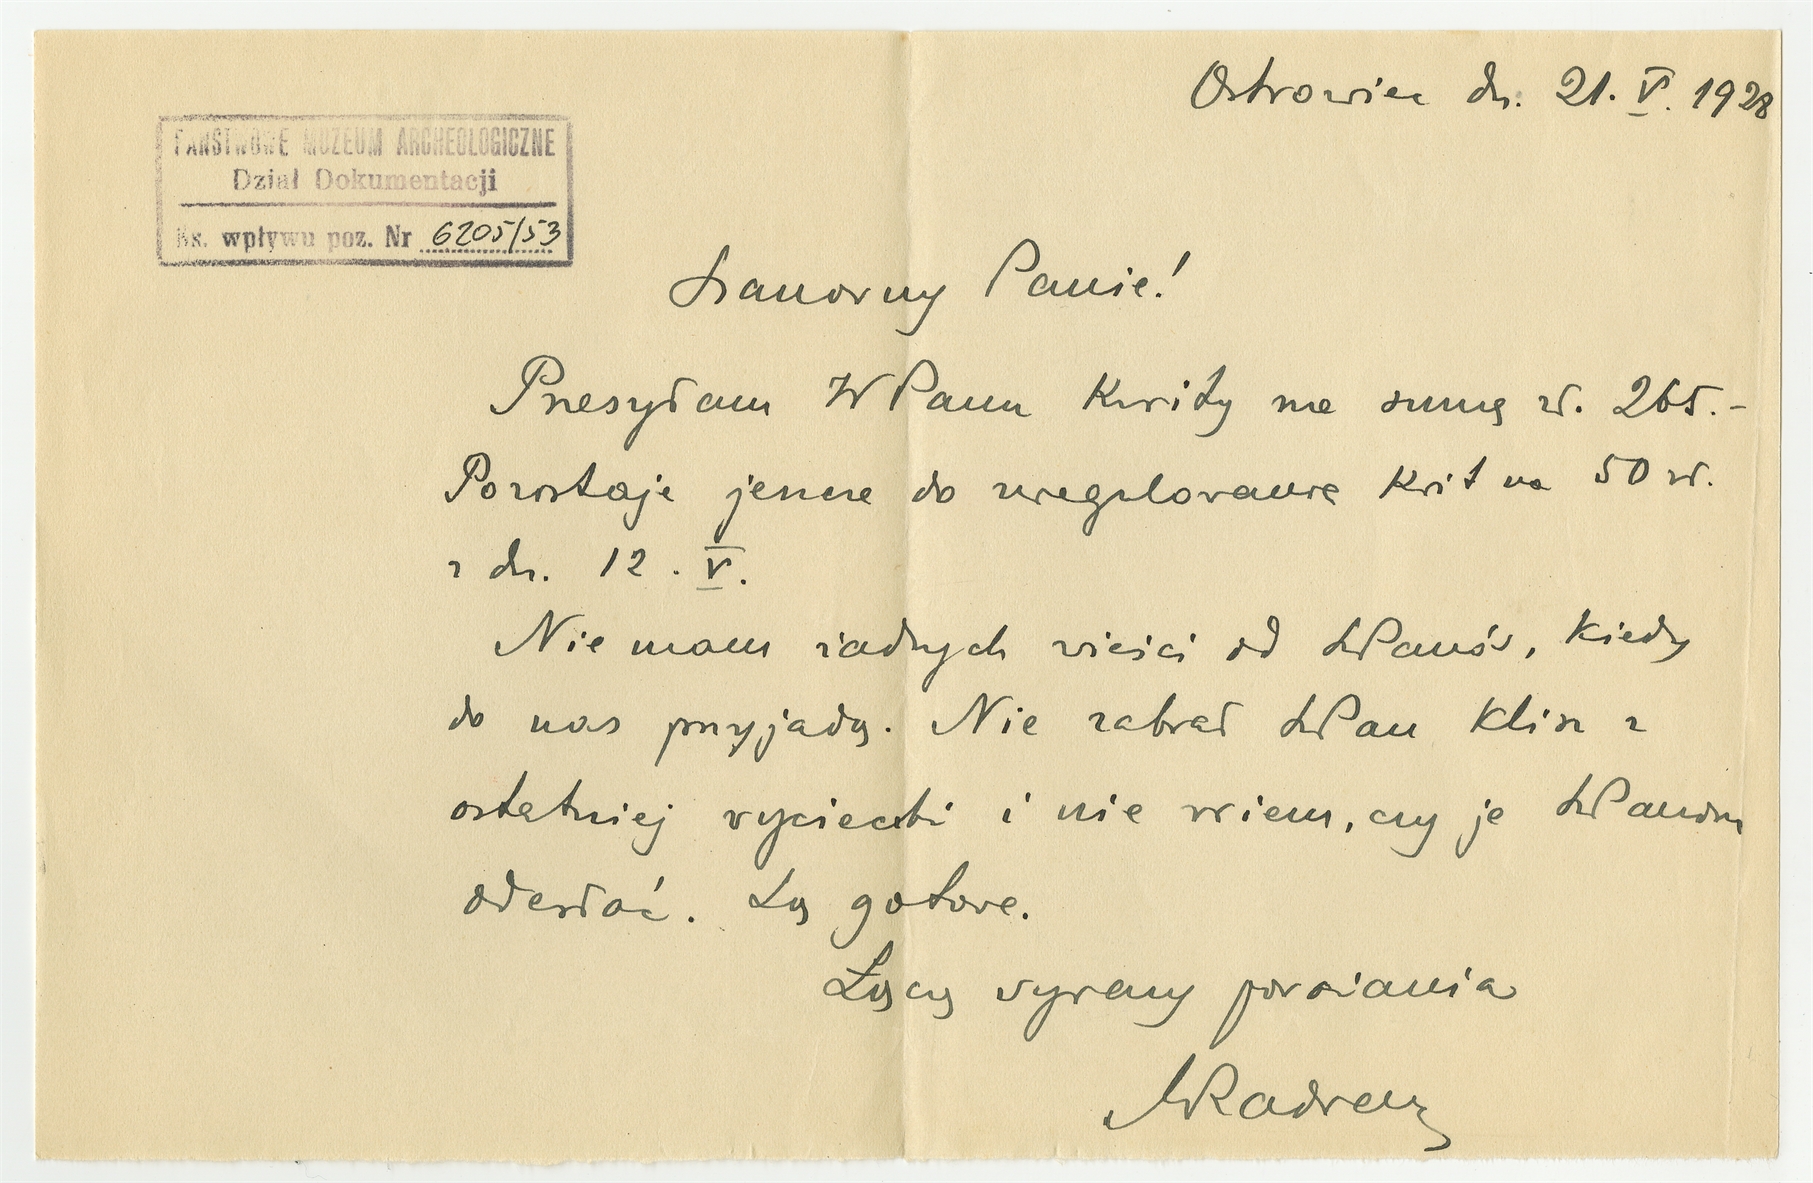 Ostrowiec dn. 21. V. 1928
PAŃSTWOWE MUZEUM ARCHEOLOGICZNE
Dział Dokumentacji
Ks. wpływu poz. Nr 6205/53
Szanowny Panie!
Przesyłam WPanu Kwity na sumę zł. 265.-
Pozostaje jeszcze do uregulowania Kwit na 50 zł.
z dn. 12. V.
Nie mam żadnych wieści od Panów, Kiedy
do nas przyjadą. Nie zabrał Pan Klisz z
ostatniej wycieczki i nie wiem, czy je
odesłać. Są gotowe.
Łączę wyrazy poważania
MRadwan